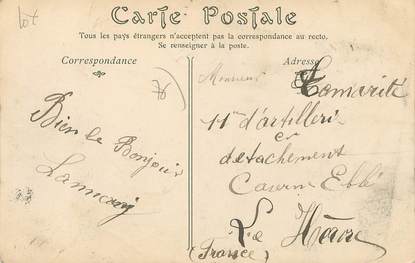 Lot
Carte Postale
Tous les pays étrangers n'acceptent pas la correspondance au recto.
Se renseigner à la poste.
Correspondance
Adresse
Bien le Bonjour
Monsieur
11me d'artillerie
detachement
Caserne Eblé
Le Havre
(France)